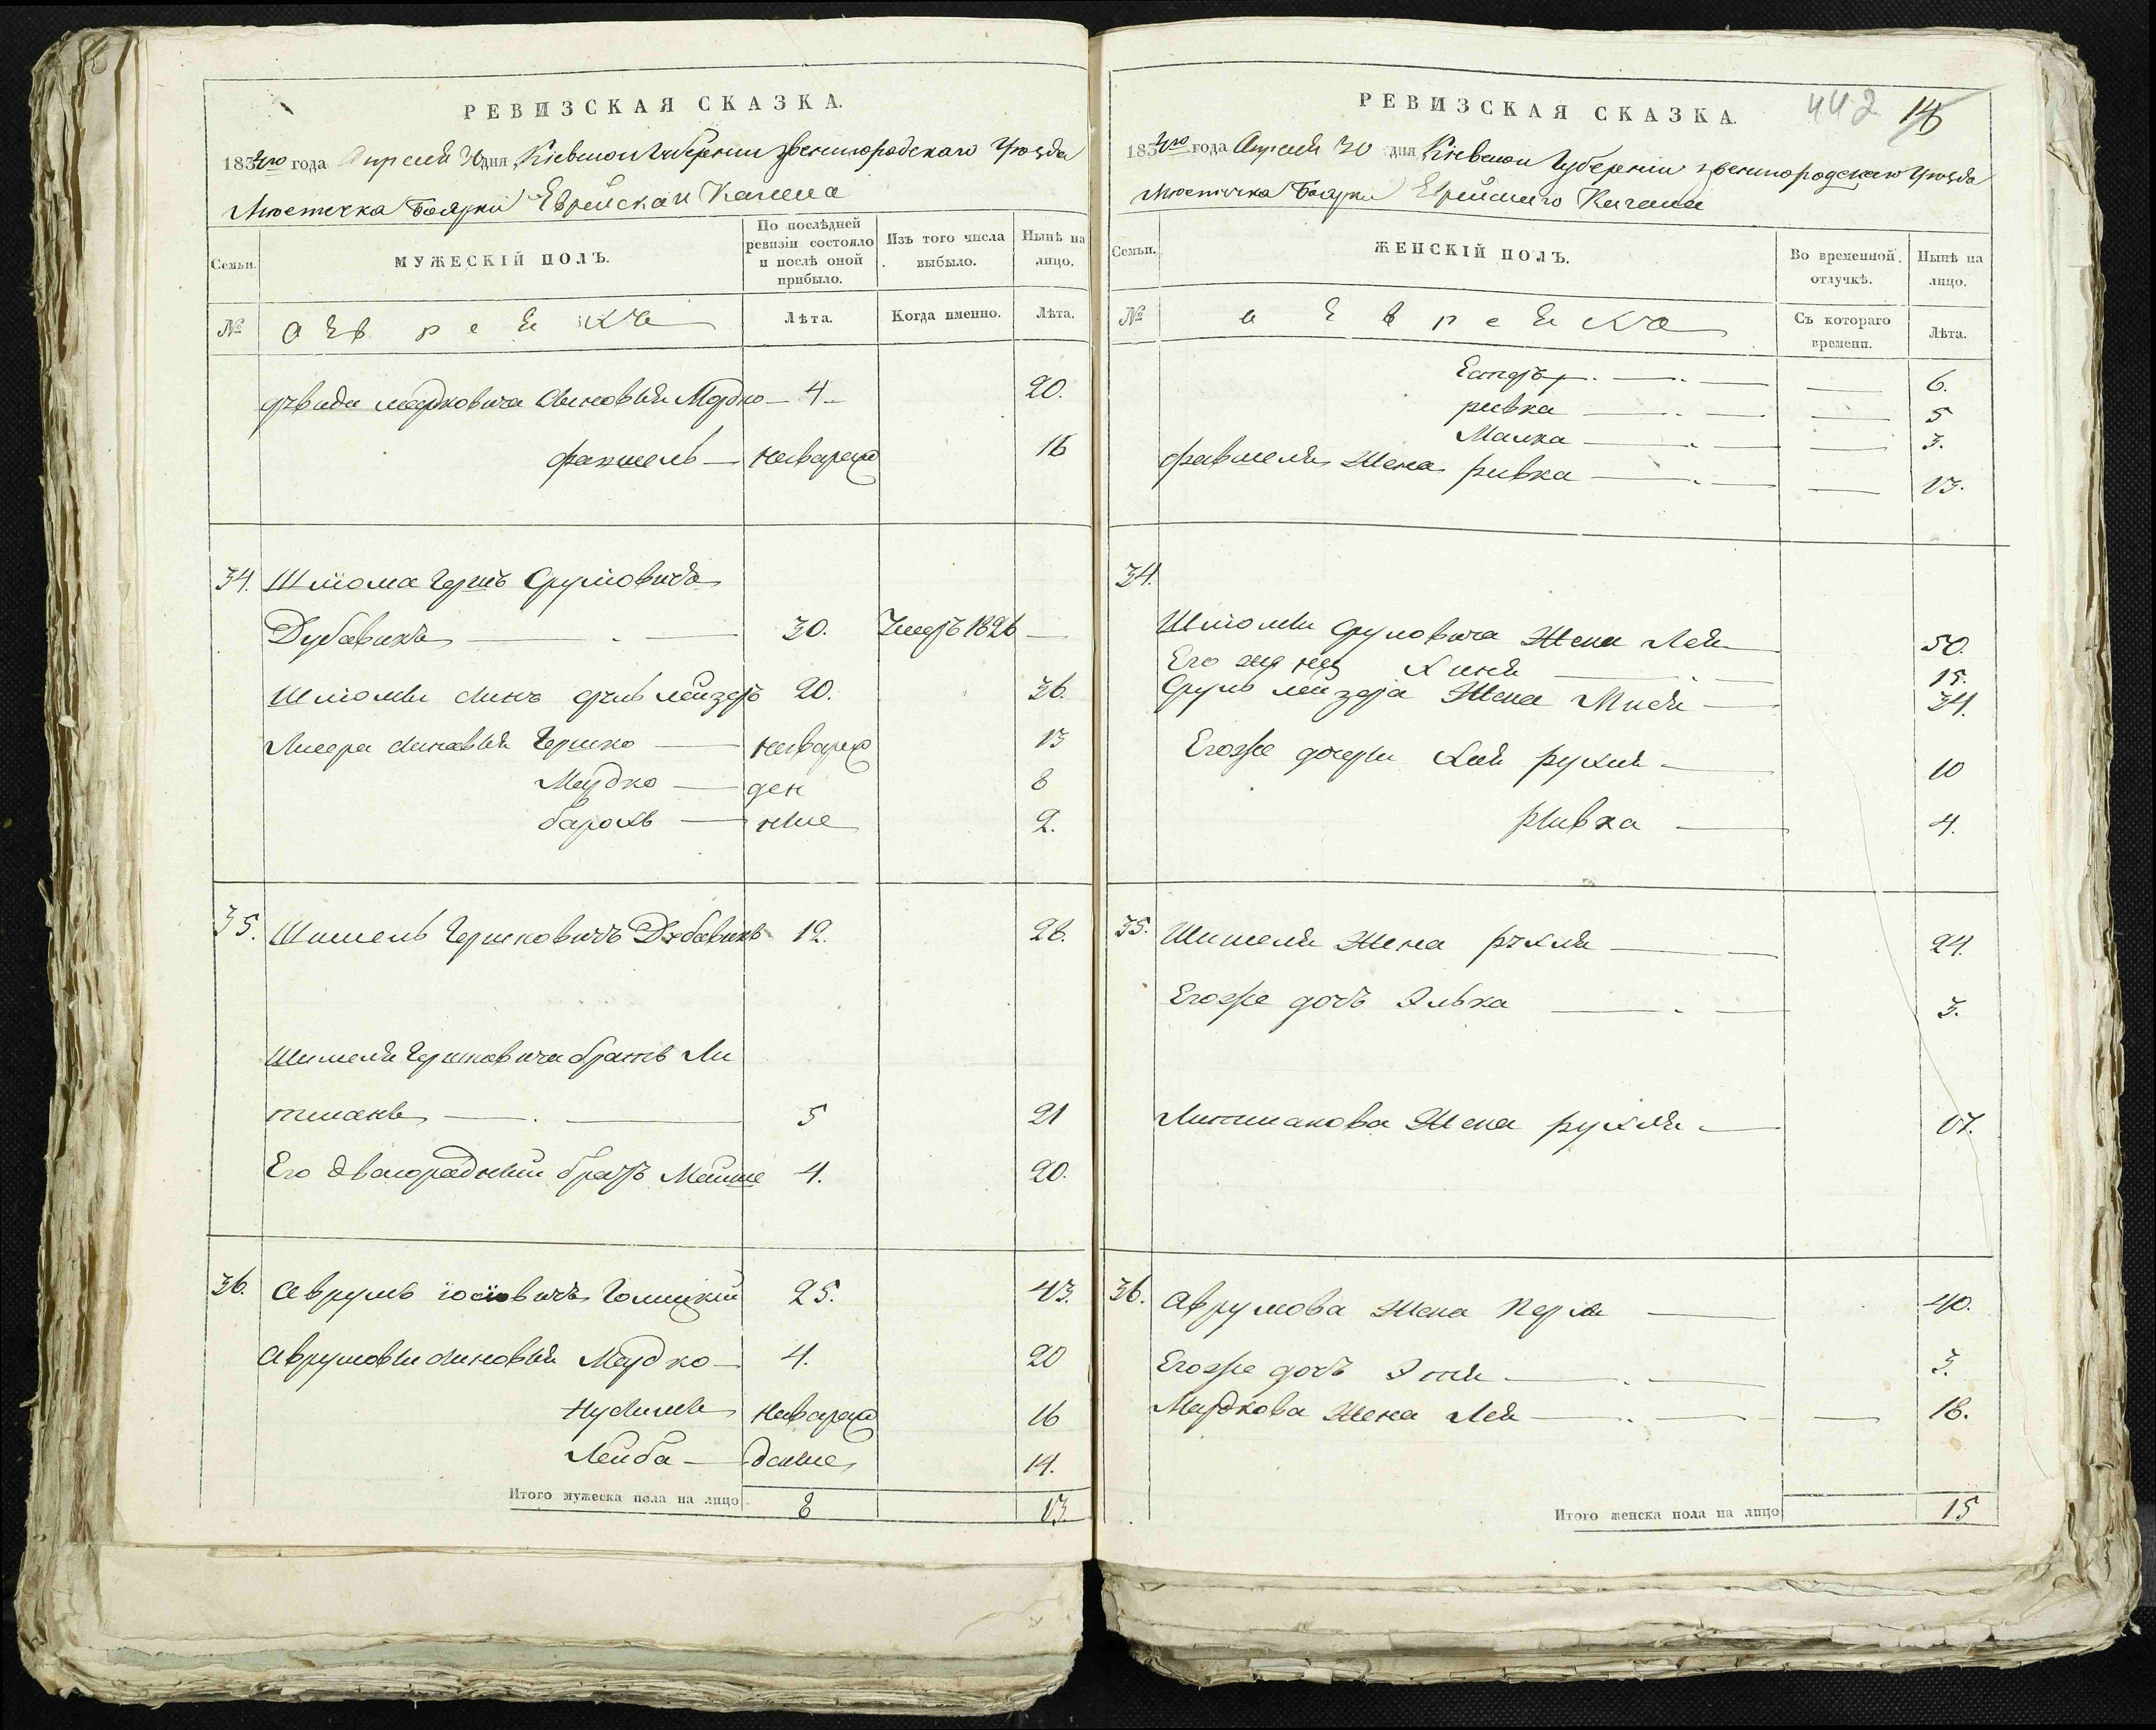 РЕВИЗСКАЯ СКАЗКА.
1834го года Апреля 30 дня Кіевской Губерніи Звенигородскаго Уезда
Местечка Боярки Еврейскаи Кагела
Семьи.
МУЖЕСКІЙ ПОЛЪ.
По послѣдней ревизіи состояло и послѣ оной прибыло.
Изъ того числа выбыло.
Нынѣ на лицо.
№
а Е в р е и ка
Лѣта.
Когда именно.
Лѣта.
Мордковича Синовья Мордко — 4 — 20.
— новарож 16
34. Шлома Герш Сруловичъ
Дубавикъ — 30. Умеръ 1826 —
Шломы Синъ Лейзеръ 20. 36.
Синовья Гершко — новарож 13
Мордко — ден 8
Борохъ — ние 2.
35. Шимель Гершковичъ Дубавикъ 12. 28.
Шимеля Гершковича братъ Ли
тманъ — 5 21
Его двоюродный братъ Мошше 4. 20.
36. Аврумъ Іосіовичъ Голицкий 25. 43.
Аврумовы синовья Мордко — 4. 20
новарож 16
Лейба — дение 14.
Итого мужеска пола на лицо 8 13.
РЕВИЗСКАЯ СКАЗКА.
442 14
1834го года Апреля 30 дня Кіевской Губерніи Звенигородскаго Уезда
Местечка Боярки Еврейскаго Кагала
Семьи.
ЖЕНСКІЙ ПОЛЪ.
Во временной отлучкѣ.
Нынѣ на лицо.
№
а Е в р е и ка
Съ котораго времени.
Лѣта.
Естеръ — 6.
ривка — 5
Малка — 3.
Жена ривка — 13.
34.
Шломы Сруловича Жена Лея — 50.
Его Хиня — 15.
Срулъ Лейзора Жена — 34.
Егоже дочери Хая рухля — 10
ривка — 4.
35. Шимеля Жена рухля — 24.
Егоже дочь Элька — 3.
Литманова Жена рухля — 17.
36. Аврумова Жена Перля — 40.
Егоже дочь Этя — 3.
Мордкова Жена Лея — 18.
Итого женска пола на лицо 15